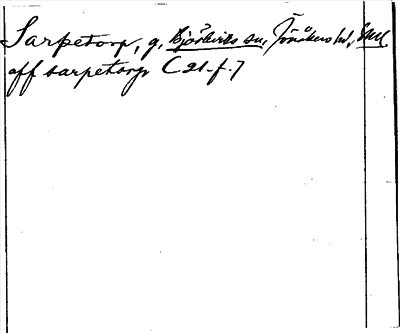 Sarpetorp, g, Björkviks sn, Jönåkers hd, Söd
aff sarpetorp (21-f-)